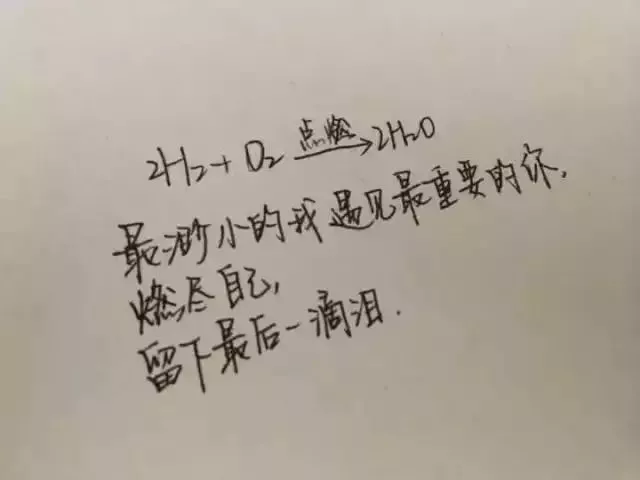 2H₂+O₂ 点燃→ 2H₂O
最渺小的我遇见最重要的你,
燃尽自己,
留下最后一滴泪.